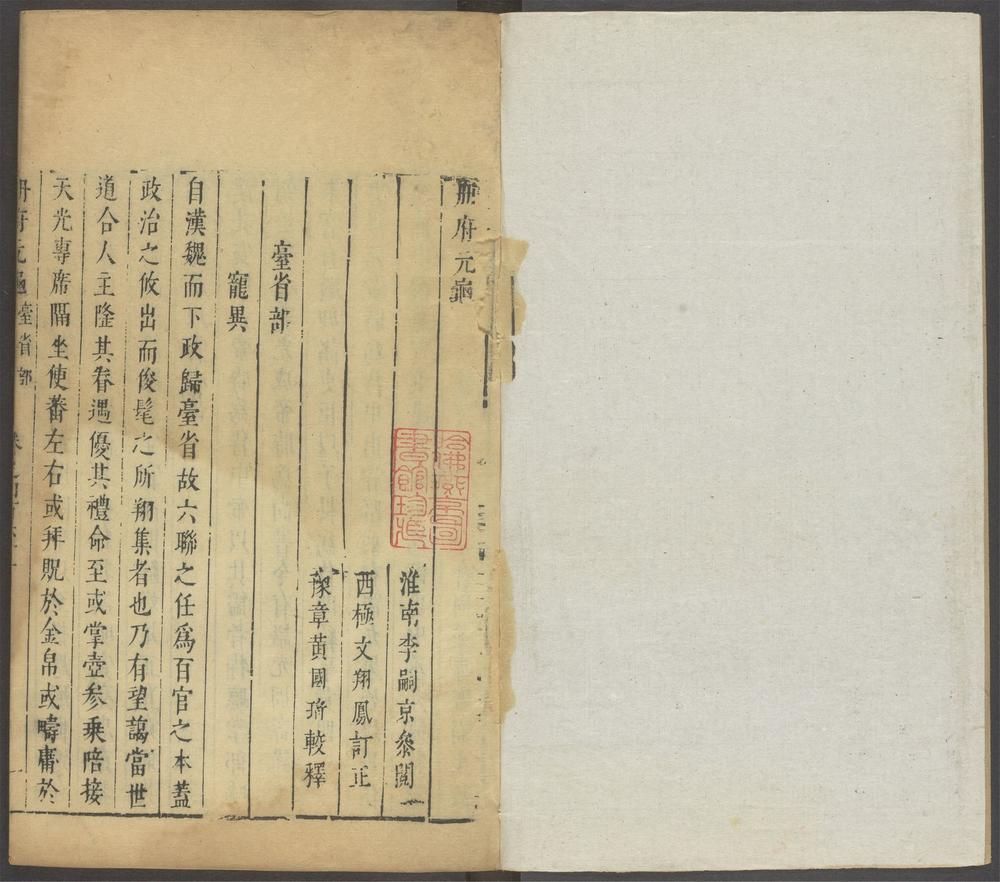 冊府元龜
淮南李嗣京叅閱
西極文翔鳳訂正
豫章黃國琦較釋
臺省部
寵異
自漢魏而下政歸臺省故六聯之任爲百官之本蓋
政治之攸出而俊髦之所翔集者也乃有望藹當世
道合人主隆其眷遇優其禮命至或掌壺參乗陪接
天光專席隔坐使蕃左右或拜貺於金帛或疇庸於
冊府元龜臺省部
哈佛燕京圖
書館珍藏